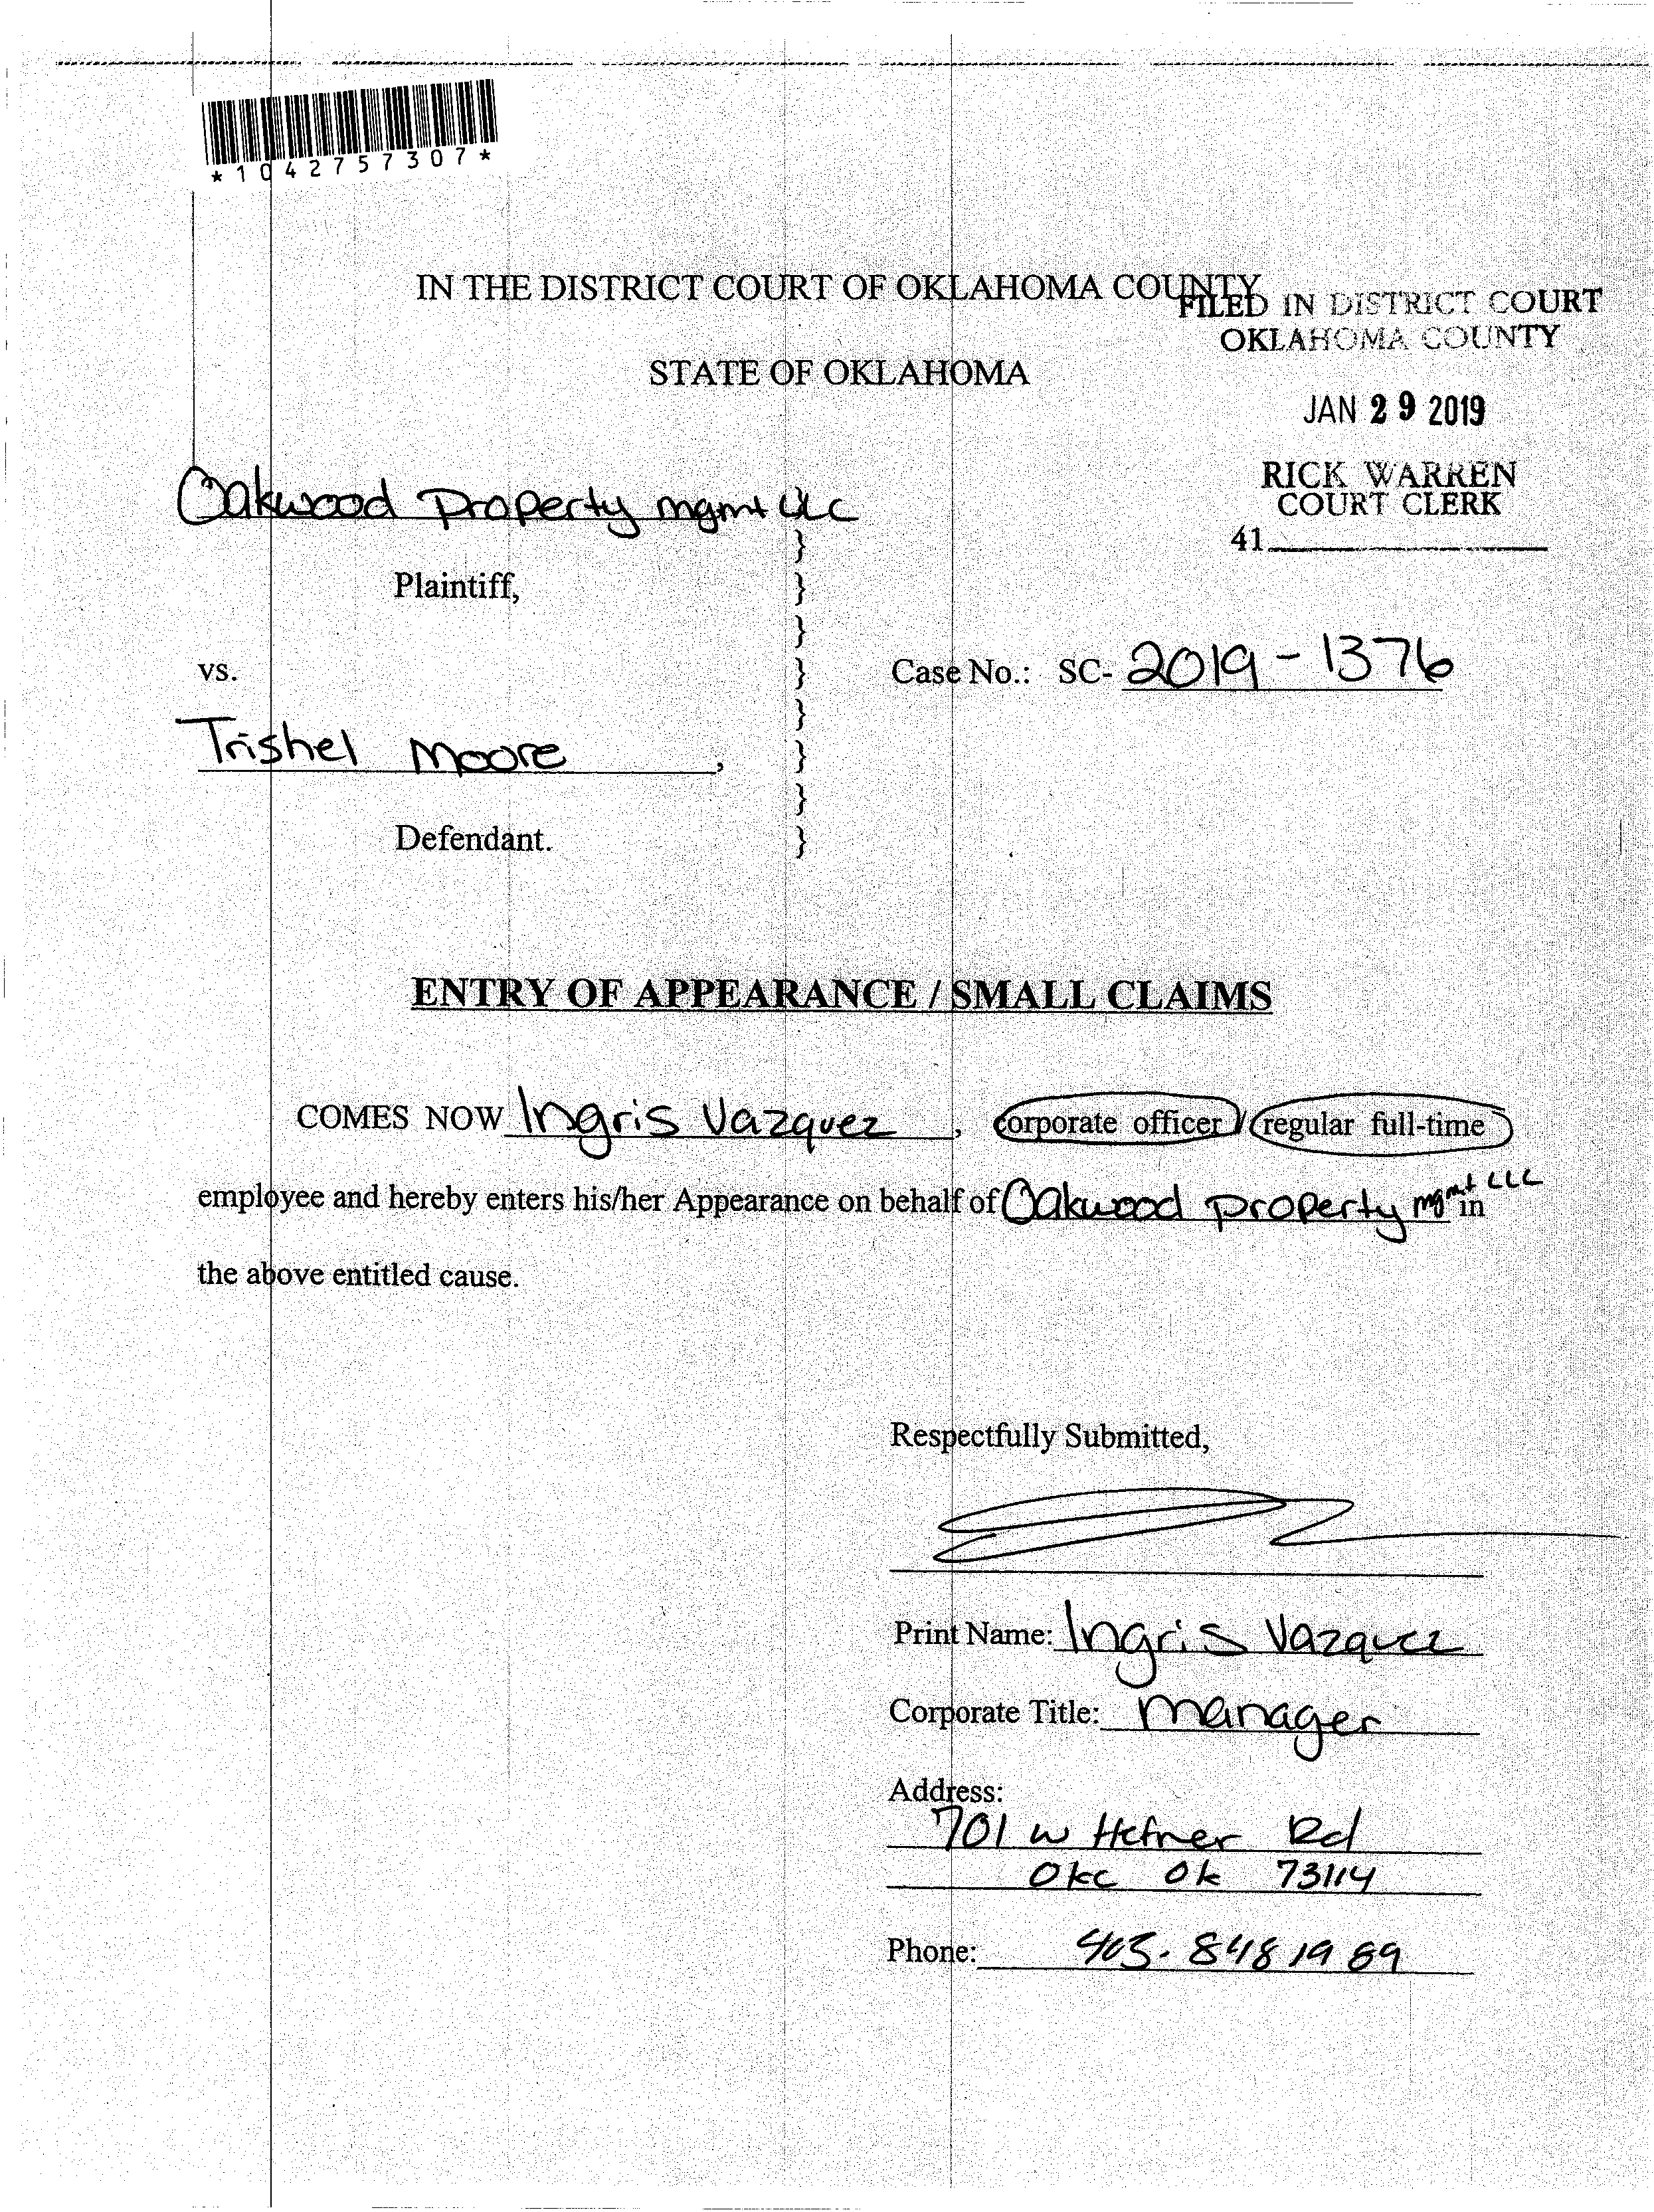 *1042757307*
IN THE DISTRICT COURT OF OKLAHOMA COUNTY
FILED IN DISTRICT COURT
OKLAHOMA COUNTY
STATE OF OKLAHOMA
JAN 29 2019
RICK WARREN
COURT CLERK
41
Oakwood Property mgmt LLC
}
Plaintiff, }
}
vs. } Case No.: SC- 2019-1376
}
Trishel Moore, }
}
Defendant. }
ENTRY OF APPEARANCE / SMALL CLAIMS
COMES NOW Ingris Vazquez, corporate officer / regular full-time
employee and hereby enters his/her Appearance on behalf of Oakwood property mgmt LLC in
the above entitled cause.
Respectfully Submitted,
Print Name: Ingris Vazquez
Corporate Title: manager
Address:
701 W Hefner Rd
OKC OK 73114
Phone: 405.848 1989